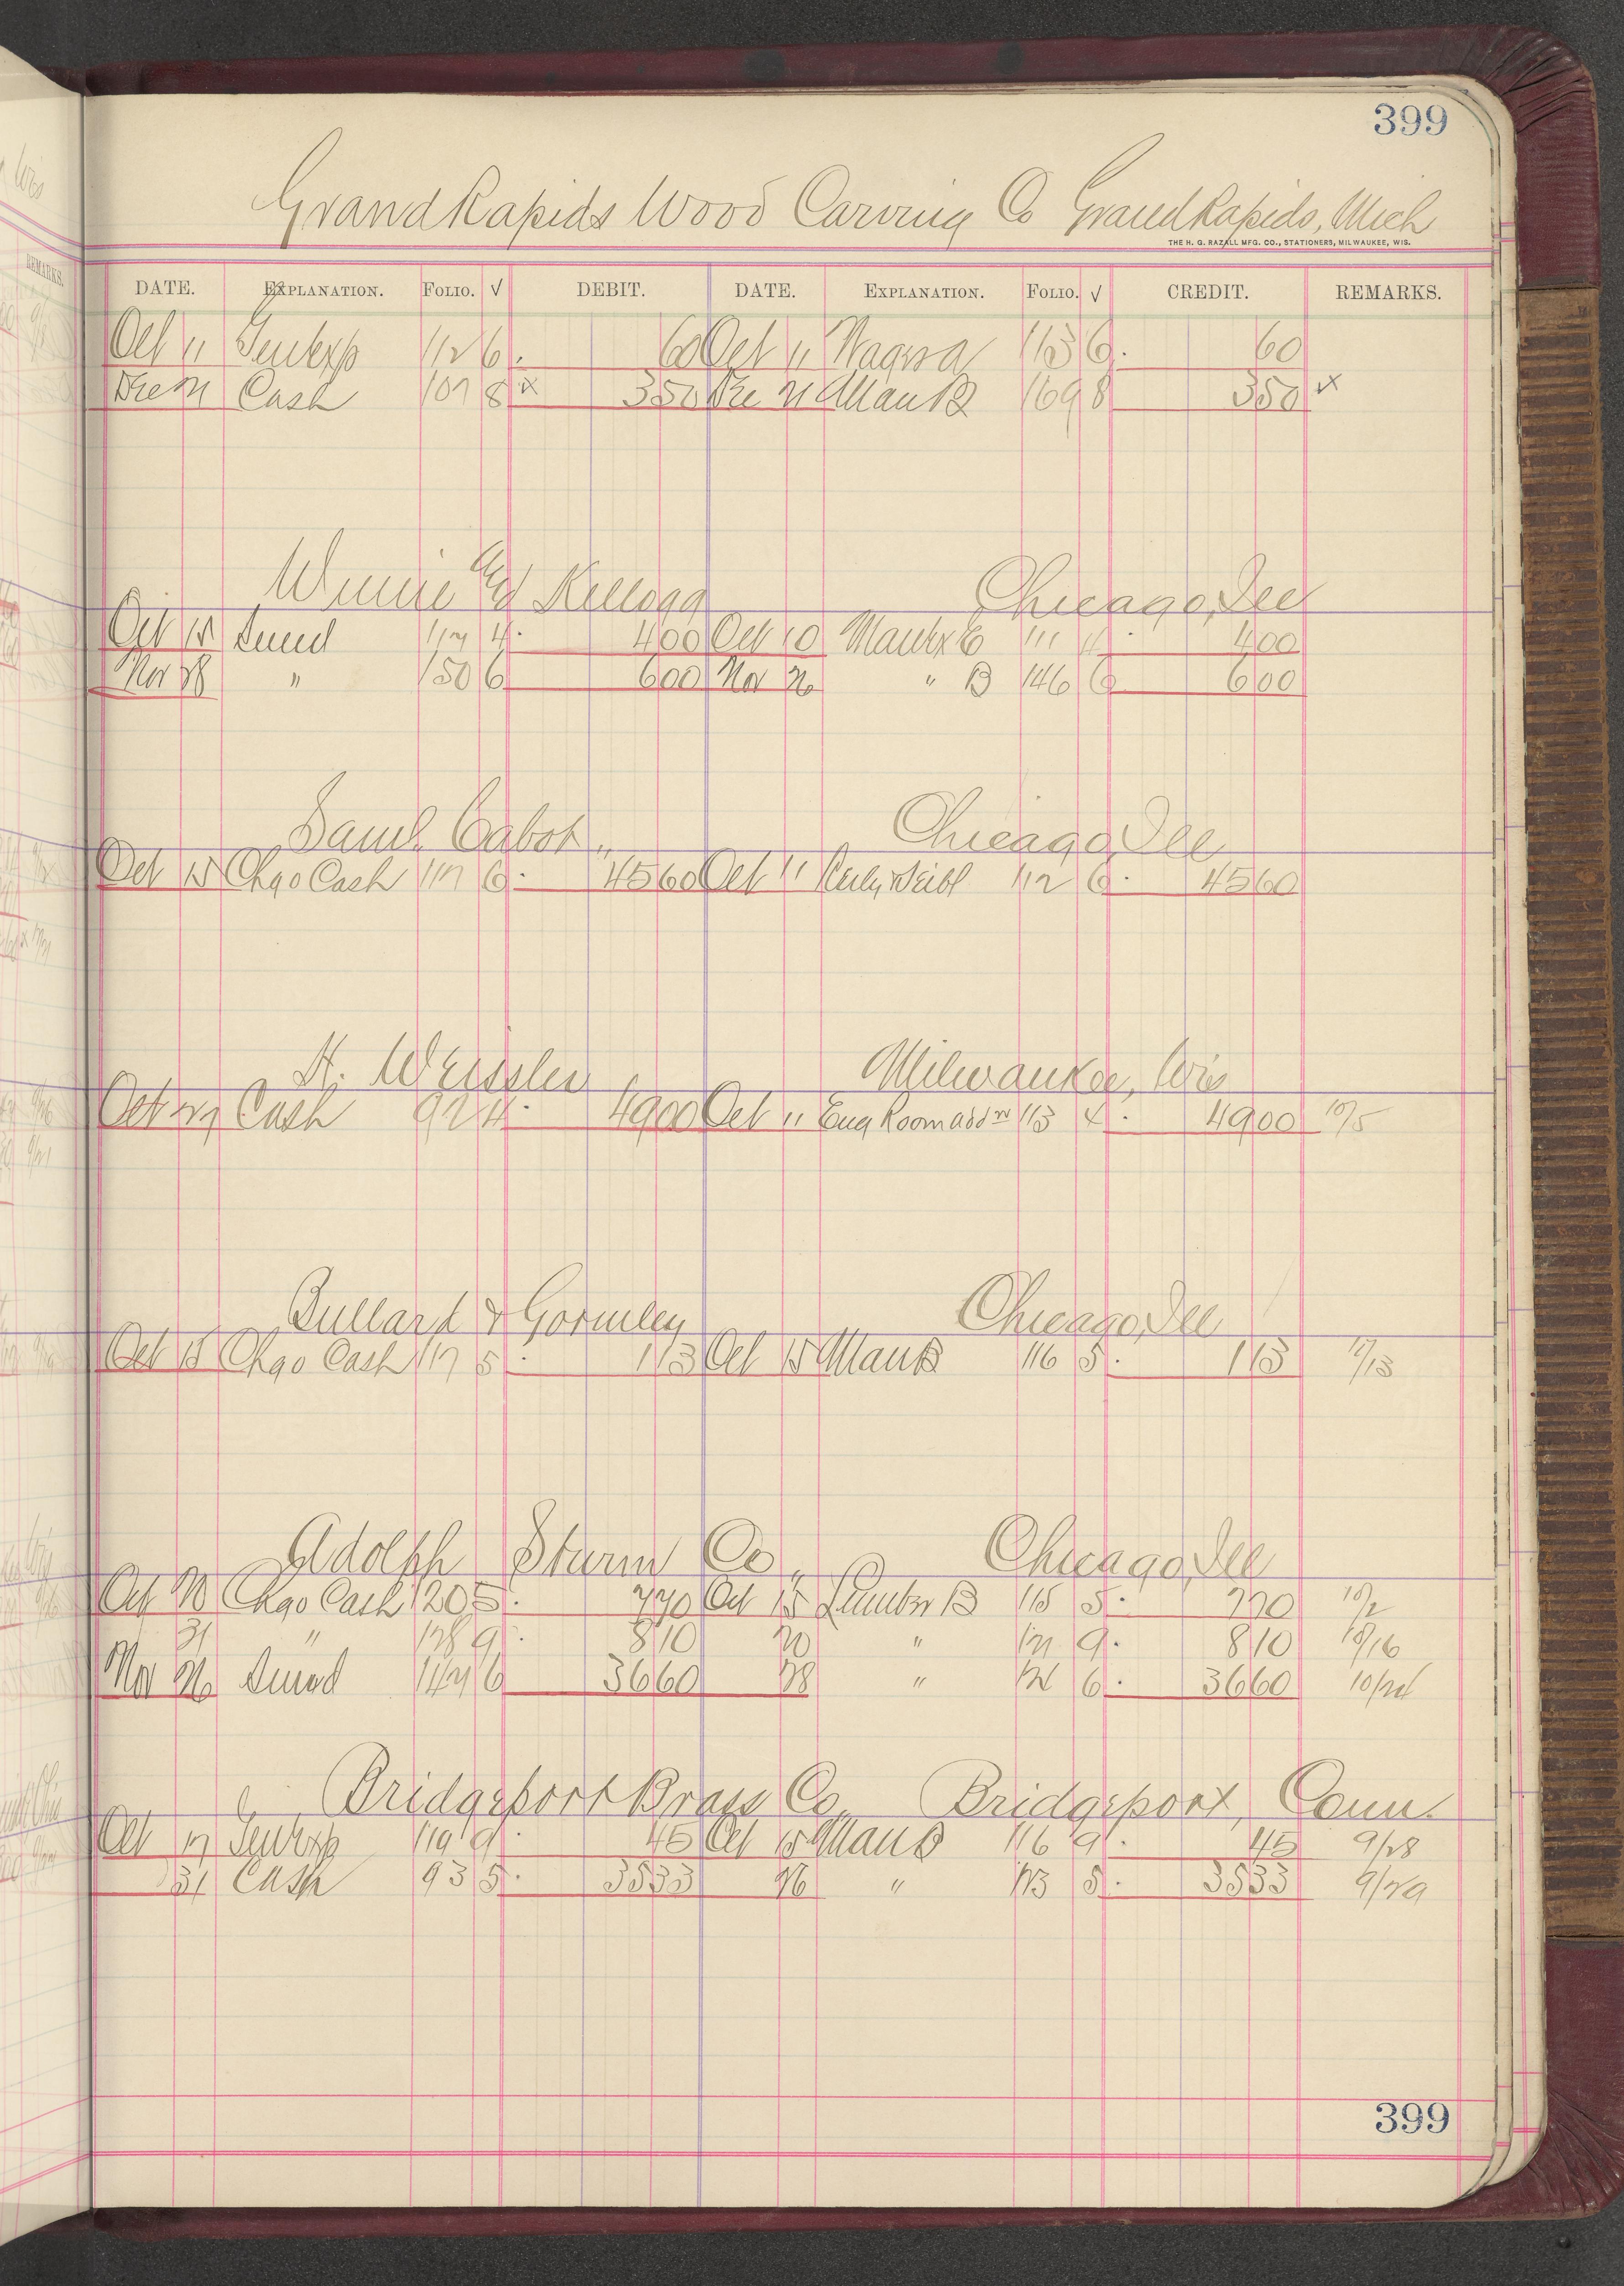 399
Grand Rapids Wood Carving Co Grand Rapids, Mich
THE H. G. RAZALL MFG. CO., STATIONERS, MILWAUKEE, WIS.
DATE. EXPLANATION. FOLIO. √ DEBIT. DATE. EXPLANATION. FOLIO. √ CREDIT. REMARKS.
Oct 11 Genl Exp 112 6 60 Oct 11 113 6 60
Dec 21 Cash 107 8 x 350 Dec 21 Man B 169 8 350 x
Kellogg Chicago, Ill
Oct 15 Sund 117 4 400 Oct 10 111 4 400
Nov 28 " 150 6 600 Nov 26 " B 146 6 600
Saml Cabot " Chicago, Ill
Oct 15 Chgo Cash 117 6 4560 Oct 11 112 6 4560
H. Weissler Milwaukee, Wis
Oct 27 Cash 92 4 4900 Oct 11 Eng Room addn 113 4 4900 10/5
Bullard & Gormley Chicago, Ill
Oct 15 Chgo Cash 117 5 113 Oct 15 Man B 116 5 113 /13
Adolph Sturm Co " Chicago, Ill
Oct 20 Chgo Cash 120 5 770 Oct 15 Lumber B 115 5 770 10/2
31 " 128 9 810 20 " 121 9 810 10/16
Nov 26 Sund 147 6 3660 28 " 6 3660 10/24
Bridgeport Brass Co Bridgeport, Conn.
Oct 17 Genl Exp 119 9 45 Oct 15 Man B 116 9 45 9/28
31 Cash 93 5 3533 26 " 123 5 3533 9/29
399